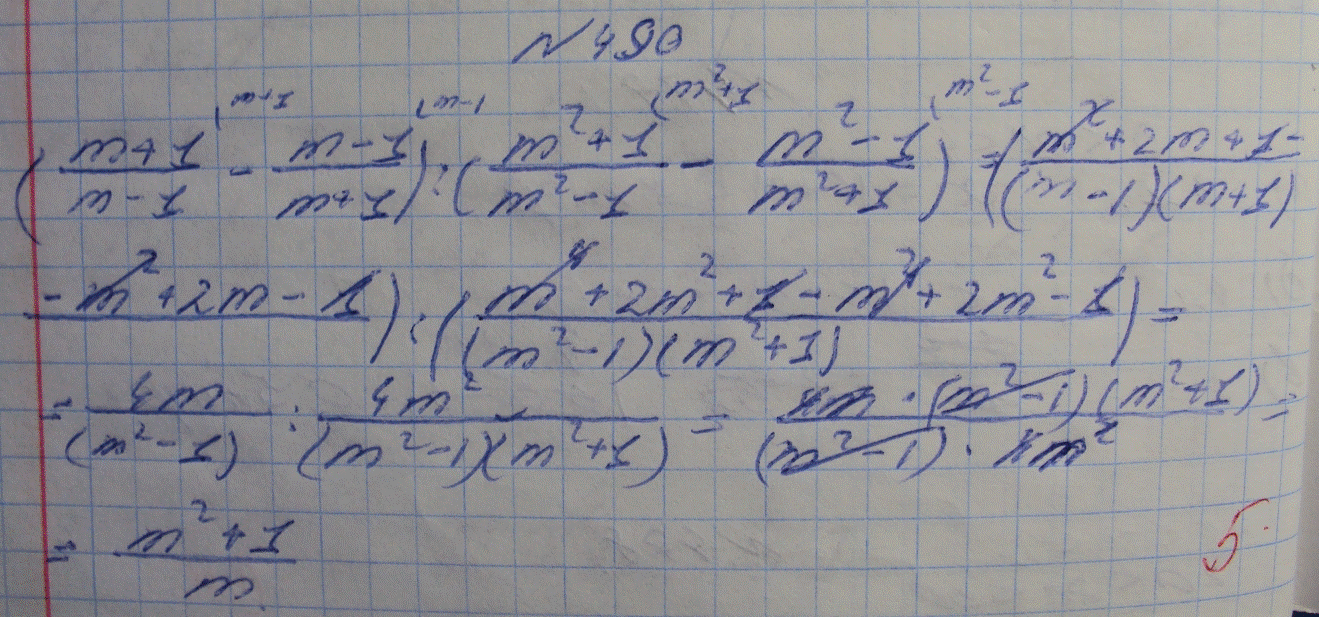 N 490
((m+1)/(m-1) - (m-1)/(m+1)) : ((m²+1)/(m²-1) - (m²-1)/(m²+1)) = ((m²+2m+1-)/((m-1)(m+1))
-m²+2m-1) : ((m⁴+2m²+1-m⁴+2m²-1)/((m²-1)(m²+1))) =
= 4m/(m²-1) : 4m²/((m²-1)(m²+1)) = (4m·(m²-1)(m²+1))/((m²-1)·4m²) =
= (m²+1)/m
5